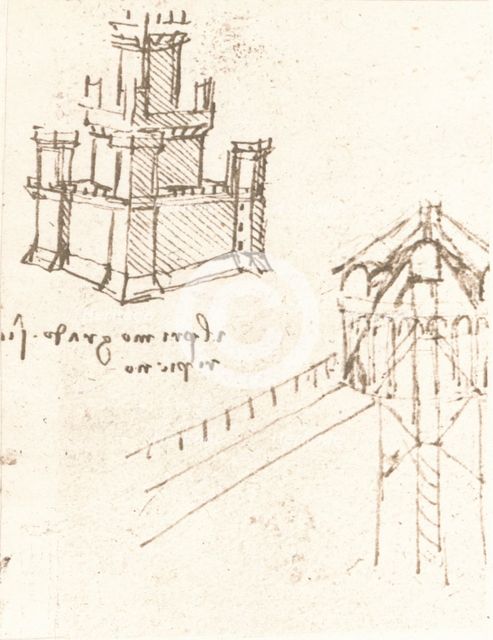 il primo grado.
ripieno